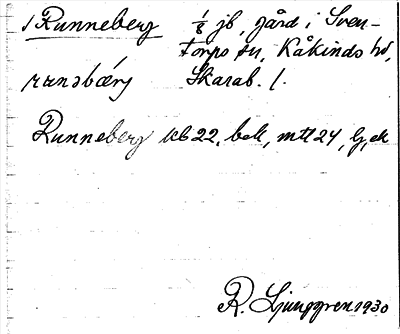 1 Runneberg 1/8 jb, gård i Sven-
torps sn, Kåkinds hd,
runəbærj Skarab. l.
Runneberg kb 22, bek, mtl 24, lj, ek
R. Ljunggren 1930